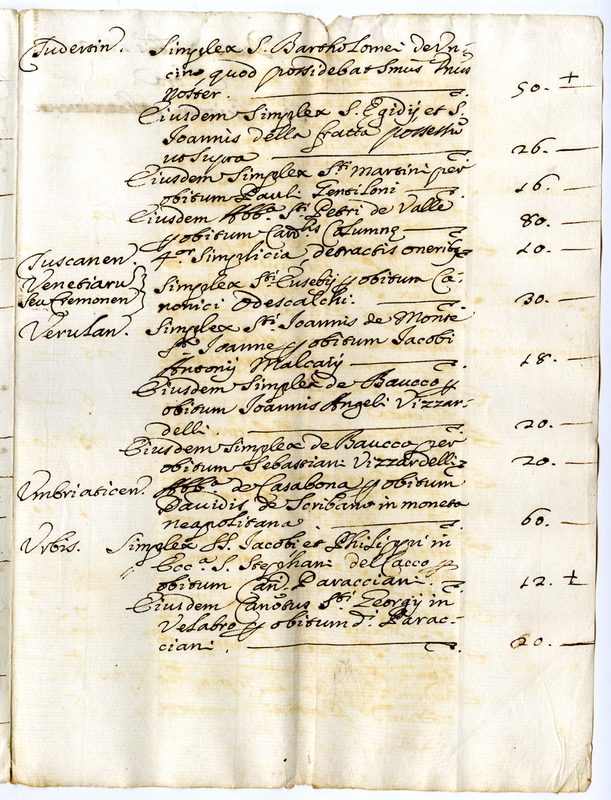 Tudertin. Simplex S. Bartholomei de Un-
cin, quod possidebat Smus Dnus
Noster. 50. +
Eiusdem Simplex S. Egidij et S.
Joannis della fratta possessū
ut supra 26.
Eiusdem Simplex Sti Martini per
obitum Pauli Gentiloni 16.
Eiusdem Abba Sti Petri de Valle
p obitum Carlis Columnę 80.
Tuscanen. 4or Simplicia detractis oneribȝ 10.
Venetiarū Simplex Sti Eusebij p obitum Ca-
seu Cremonen nonici Odescalchi. 30.
Verulan. Simplex Sti Joannis de Monte
Sto Joanne p obitum Jacobi
Antonij Malcaij 18.
Eiusdem Simplex de Baucco p
obitum Joannis Angeli Vizzar-
delli. 20.
Eiusdem Simplex de Baucco per
obitum Sebastiani Vizzardelli 20.
Umbriaticen. Abba de Casabona p obitum
Davidis de Scribano in moneta
neapolitana 60.
Urbis. Simplex SS. Jacobi et Philippi in
Ecca S. Stephani del Cacco p
obitum Can. Paracciani. 12. +
Eiusdem Canotus Sti Georgij in
Velabro p obitum d. Parac-
ciani. 20.